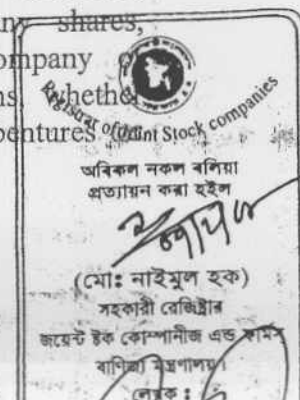 shares,
ompany
whether
Registrar of Joint Stock companies
অবিকল নকল বলিয়া
প্রত্যায়ন করা হইল
(মোঃ নাইমুল হক)
সহকারী রেজিষ্ট্রার
জয়েন্ট ষ্টক কোম্পানীজ এন্ড ফার্মস
বাণিজ্য মন্ত্রণালয়।